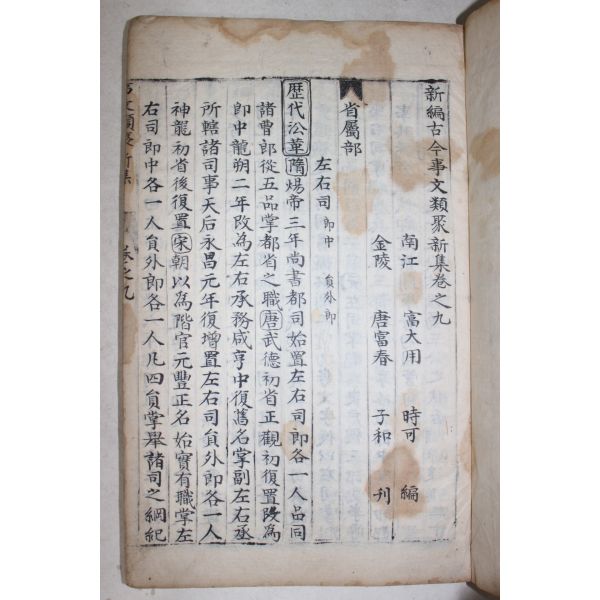 新編古今事文類聚新集卷之九
南江 富大用 時可 編
金陵 唐富春 子和 刊
省屬部
左右司 郎中 員外郎
歷代沿革隋煬帝三年尚書都司始置左右司郎各一人品同
諸曹郎從五品掌都省之職唐武德初省正觀初復置改為
郎中龍朔二年改為左右承務咸亨中復舊名掌副左右丞
所轄諸司事天后永昌元年復增置左右司員外郎各一人
神龍初省後復置宋朝以為階官元豐正名始實有職掌左
右司郎中各一人員外郎各一人凡四員掌舉諸司之綱紀
事文類聚新集 卷之九